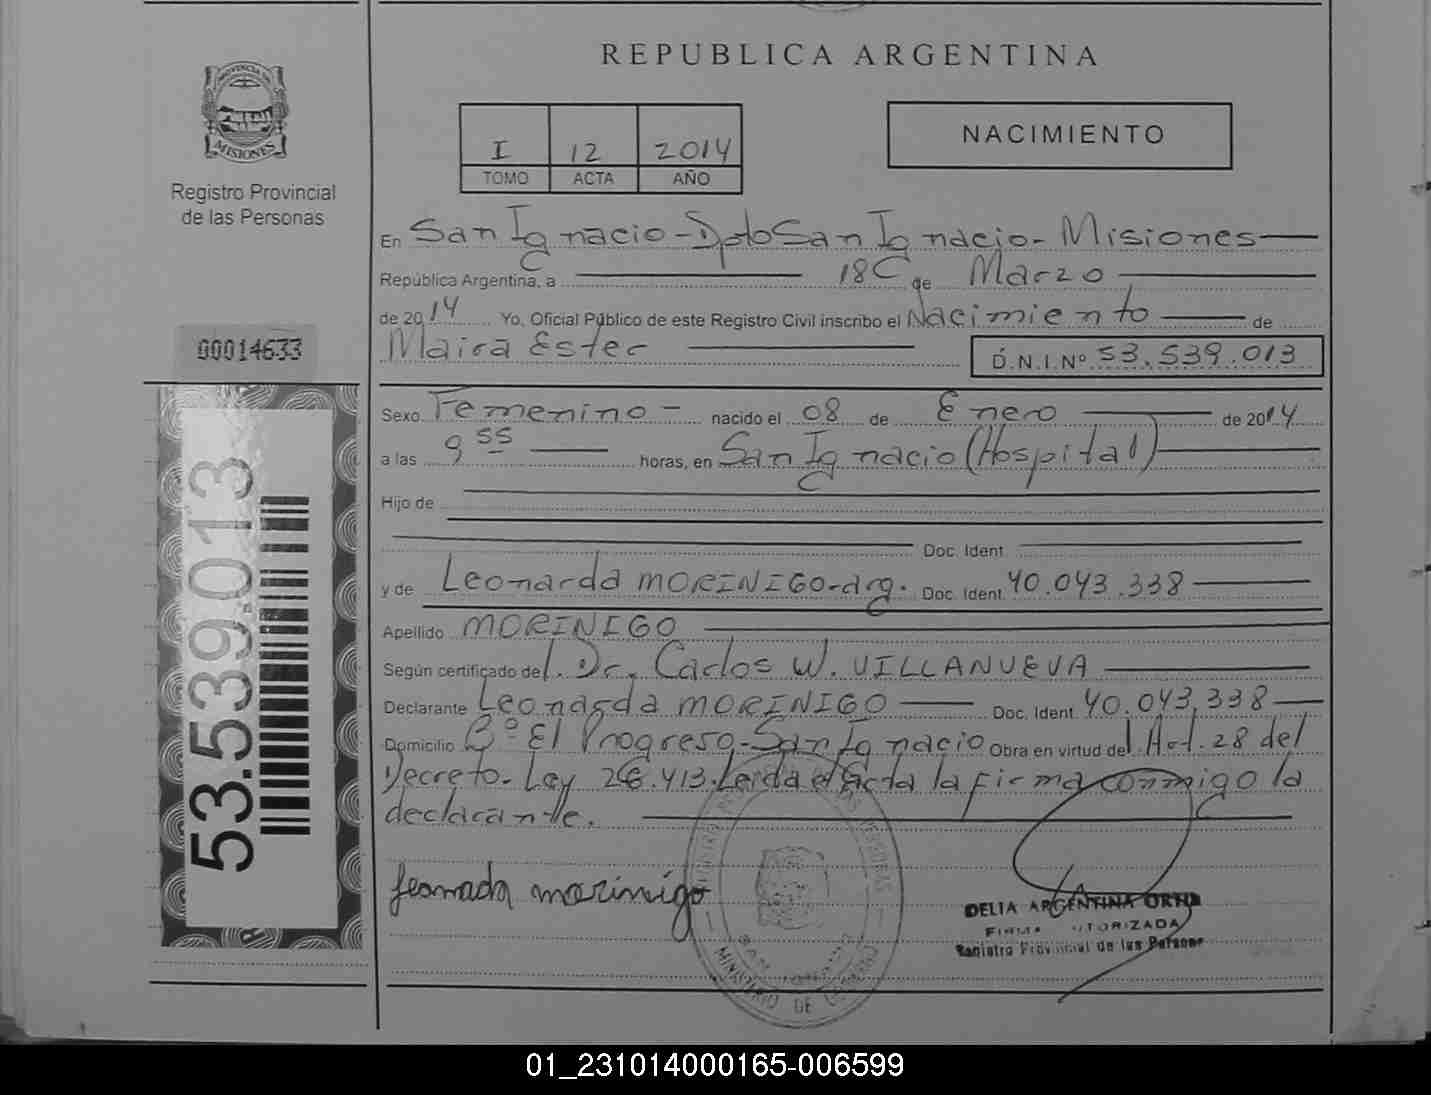 REPUBLICA ARGENTINA
PROVINCIA DE
MISIONES
Registro Provincial
de las Personas
I 12 2014
TOMO ACTA AÑO
NACIMIENTO
En San Ignacio - Dpto San Ignacio - Misiones
República Argentina, a 18 de Marzo
de 2014 Yo, Oficial Público de este Registro Civil inscribo el Nacimiento de
Maira Ester D.N.I.Nº 53.539.013
00014633
Sexo Femenino - nacido el 08 de Enero de 2014
a las 9 55 horas, en San Ignacio (Hospital)
Hijo de
Doc. Ident.
y de Leonarda MORINIGO - arg. Doc. Ident. 40.043.338
Apellido MORINIGO
Según certificado del. Dr. Carlos W. VILLANUEVA
Declarante Leonarda MORINIGO Doc. Ident. 40.043.338
Domicilio Bº El Progreso - San Ignacio Obra en virtud del Art. 28 del
Decreto - Ley 26.413. Leida el Acta la firma conmigo la
declarante.
53.539.013
leonarda morinigo
DELIA ARGENTINA ORTIZ
FIRMA AUTORIZADA
Registro Provincial de las Personas
MINISTERIO DE GOBIERNO
01_231014000165-006599